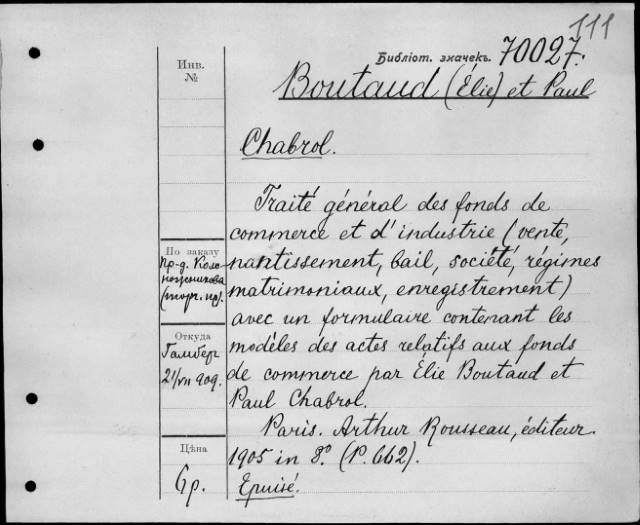 111
Библіот. значекъ. 70027.
Инв.
№
Boutaud (Élie) et Paul
Chabrol.
Traité général des fonds de
commerce et d'industrie (vente,
nantissement, bail, société, régimes
matrimoniaux, enregistrement)
avec un formulaire contenant les
modèles des actes relatifs aux fonds
de commerce par Élie Boutaud et
Paul Chabrol.
Paris. Arthur Rousseau, éditeur.
1905 in 8º. (P. 662).
Epuisé.
По заказу
пр-д.
(торг. пр).
Откуда
Гамбер
21/VII 909.
Цѣна
6р.